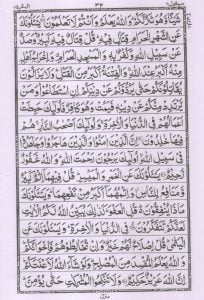 البقرة ٢
٣٤
سيقول ٢
شَيْئًا وَّهُوَ شَرٌّ لَّكُمْ وَاللّٰهُ يَعْلَمُ وَاَنْتُمْ لَا تَعْلَمُوْنَ يَسْـَٔلُوْنَكَ
عَنِ الشَّهْرِ الْحَرَامِ قِتَالٍ فِيْهِ قُلْ قِتَالٌ فِيْهِ كَبِيْرٌ وَصَدٌّ
عَنْ سَبِيْلِ اللّٰهِ وَكُفْرٌۢ بِهٖ وَالْمَسْجِدِ الْحَرَامِ وَاِخْرَاجُ اَهْلِهٖ
مِنْهُ اَكْبَرُ عِنْدَ اللّٰهِ وَالْفِتْنَةُ اَكْبَرُ مِنَ الْقَتْلِ وَلَا يَزَالُوْنَ
يُقَاتِلُوْنَكُمْ حَتّٰى يَرُدُّوْكُمْ عَنْ دِيْنِكُمْ اِنِ اسْتَطَاعُوْا وَمَنْ
يَّرْتَدِدْ مِنْكُمْ عَنْ دِيْنِهٖ فَيَمُتْ وَهُوَ كَافِرٌ فَاُولٰٓئِكَ حَبِطَتْ
اَعْمَالُهُمْ فِى الدُّنْيَا وَالْاٰخِرَةِ وَاُولٰٓئِكَ اَصْحٰبُ النَّارِ هُمْ
فِيْهَا خٰلِدُوْنَ اِنَّ الَّذِيْنَ اٰمَنُوْا وَالَّذِيْنَ هَاجَرُوْا وَجَاهَدُوْا
فِىْ سَبِيْلِ اللّٰهِ اُولٰٓئِكَ يَرْجُوْنَ رَحْمَتَ اللّٰهِ وَاللّٰهُ غَفُوْرٌ
رَّحِيْمٌ يَسْـَٔلُوْنَكَ عَنِ الْخَمْرِ وَالْمَيْسِرِ قُلْ فِيْهِمَآ اِثْمٌ كَبِيْرٌ
وَّمَنَافِعُ لِلنَّاسِ وَاِثْمُهُمَآ اَكْبَرُ مِنْ نَّفْعِهِمَا وَيَسْـَٔلُوْنَكَ
مَاذَا يُنْفِقُوْنَ قُلِ الْعَفْوَ كَذٰلِكَ يُبَيِّنُ اللّٰهُ لَكُمُ الْاٰيٰتِ
لَعَلَّكُمْ تَتَفَكَّرُوْنَ فِى الدُّنْيَا وَالْاٰخِرَةِ وَيَسْـَٔلُوْنَكَ عَنِ
الْيَتٰمٰى قُلْ اِصْلَاحٌ لَّهُمْ خَيْرٌ وَاِنْ تُخَالِطُوْهُمْ فَاِخْوَانُكُمْ
وَاللّٰهُ يَعْلَمُ الْمُفْسِدَ مِنَ الْمُصْلِحِ وَلَوْ شَآءَ اللّٰهُ لَاَعْنَتَكُمْ
اِنَّ اللّٰهَ عَزِيْزٌ حَكِيْمٌ وَلَا تَنْكِحُوا الْمُشْرِكٰتِ حَتّٰى يُؤْمِنَّ
منزل